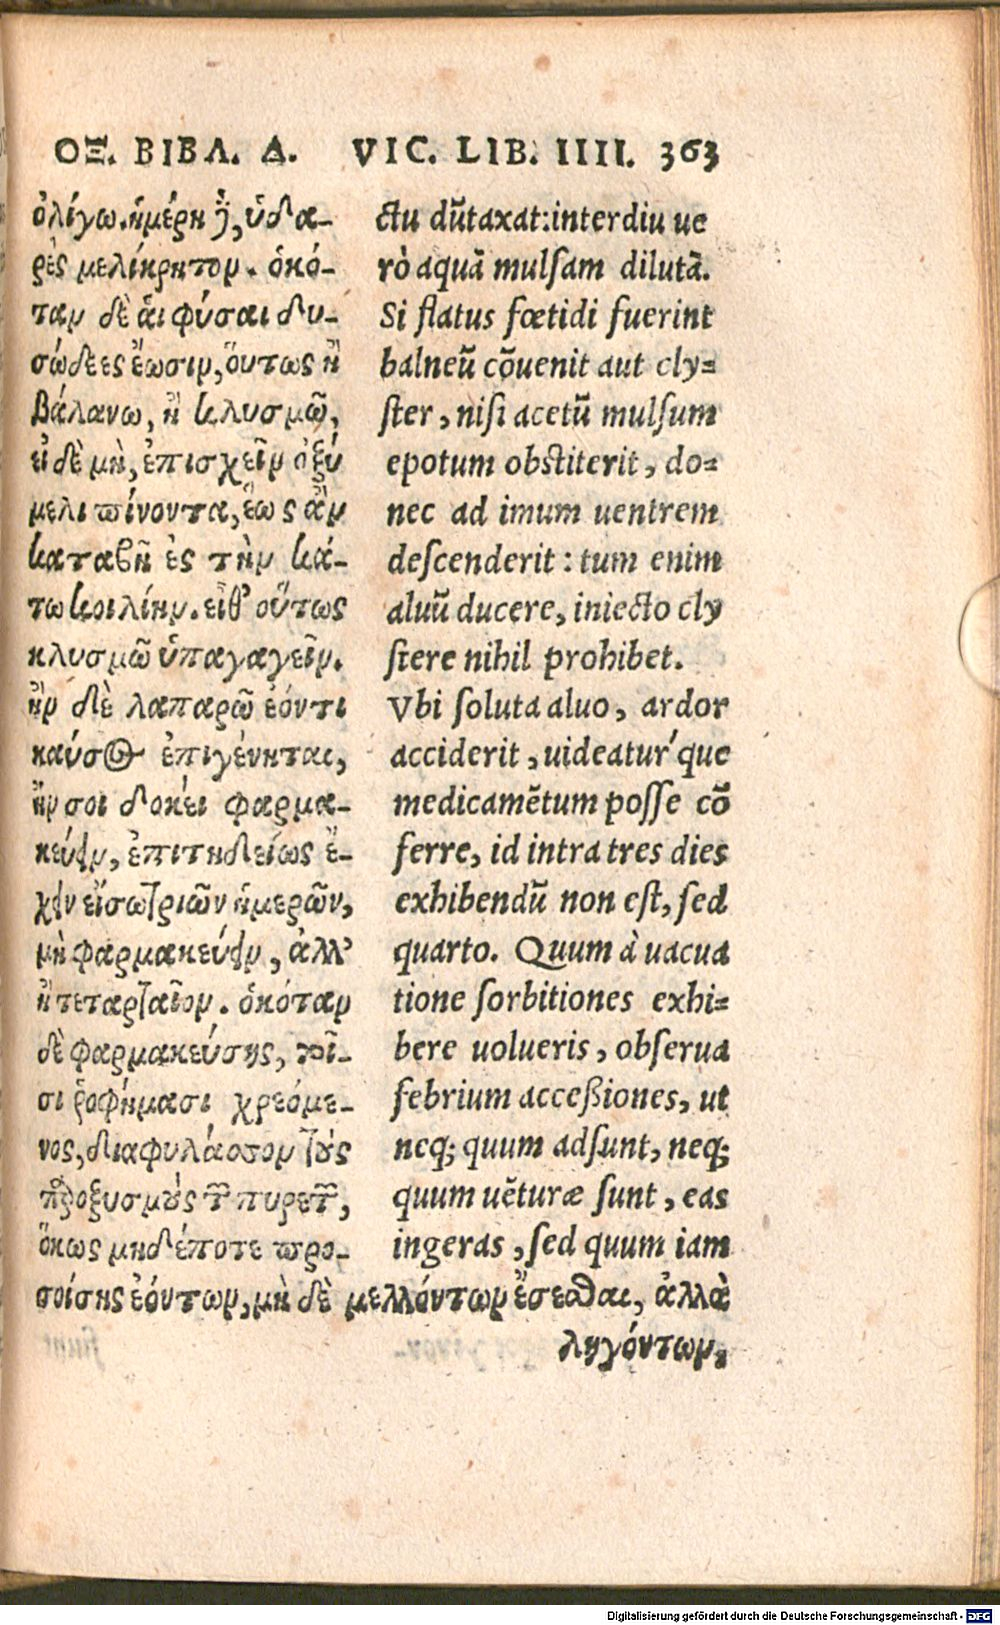 ΟΞ. ΒΙΒΛ. Δ. VIC. LIB. IIII. 363
ὀλίγω. ἡμέρη δὲ, ὑδα-
ρὲς μελίκρητον. ὁκό-
ταν δὲ ἁι φύσαι δυ-
σώδεες ἔωσιν, ὅυτως ἢ
βάλανω, ἢ κλυσμῶ,
εἰ δὲ μὴ, ἐπισχεῖν ὀξύ
μελι πίνοντα, ἕως ἂν
καταβῆ ἐς τὴν κά-
τω κοιλίην. εἶθ' οὕτως
κλυσμῶ ὑπαγαγεῖν.
ἢν δὲ λαπαρῶ ἐόντι
καύσος ἐπιγένηται,
ἤν σοι δοκέει φαρμα-
κεύειν, ἐπιτηδείως ἔ-
χειν εἴσω τριῶν ἡμερῶν,
μὴ φαρμακεύειν, ἀλλ'
ἢ τεταρταῖον. ὁκόταν
δὲ φαρμακεύσης, τοῖ-
σι ῥοφήμασι χρεόμε-
νος, διαφυλάσσον τοὺς
παροξυσμοὺς τῶν πυρετῶν,
ὅκως μηδέποτε προ-
σοίσης ἐόντων, μὴ δὲ μελλόντων ἔσεσθαι, ἀλλὰ
ληγόντων,
ctu dūtaxat: interdiu ue
rò aquā mulsam dilutā.
Si flatus fœtidi fuerint
balneū cōuenit aut cly-
ster, nisi acetū mulsum
epotum obstiterit, do-
nec ad imum uentrem
descenderit: tum enim
aluū ducere, iniecto cly
stere nihil prohibet.
Vbi soluta aluo, ardor
acciderit, uideatur´que
medicamētum posse cō
ferre, id intra tres dies
exhibendū non est, sed
quarto. Quum à uacua
tione sorbitiones exhi-
bere uolueris, obserua
febrium acceßiones, ut
neq; quum adsunt, neq;
quum uēturæ sunt, eas
ingeras, sed quum iam
Digitalisierung gefördert durch die Deutsche Forschungsgemeinschaft - DFG